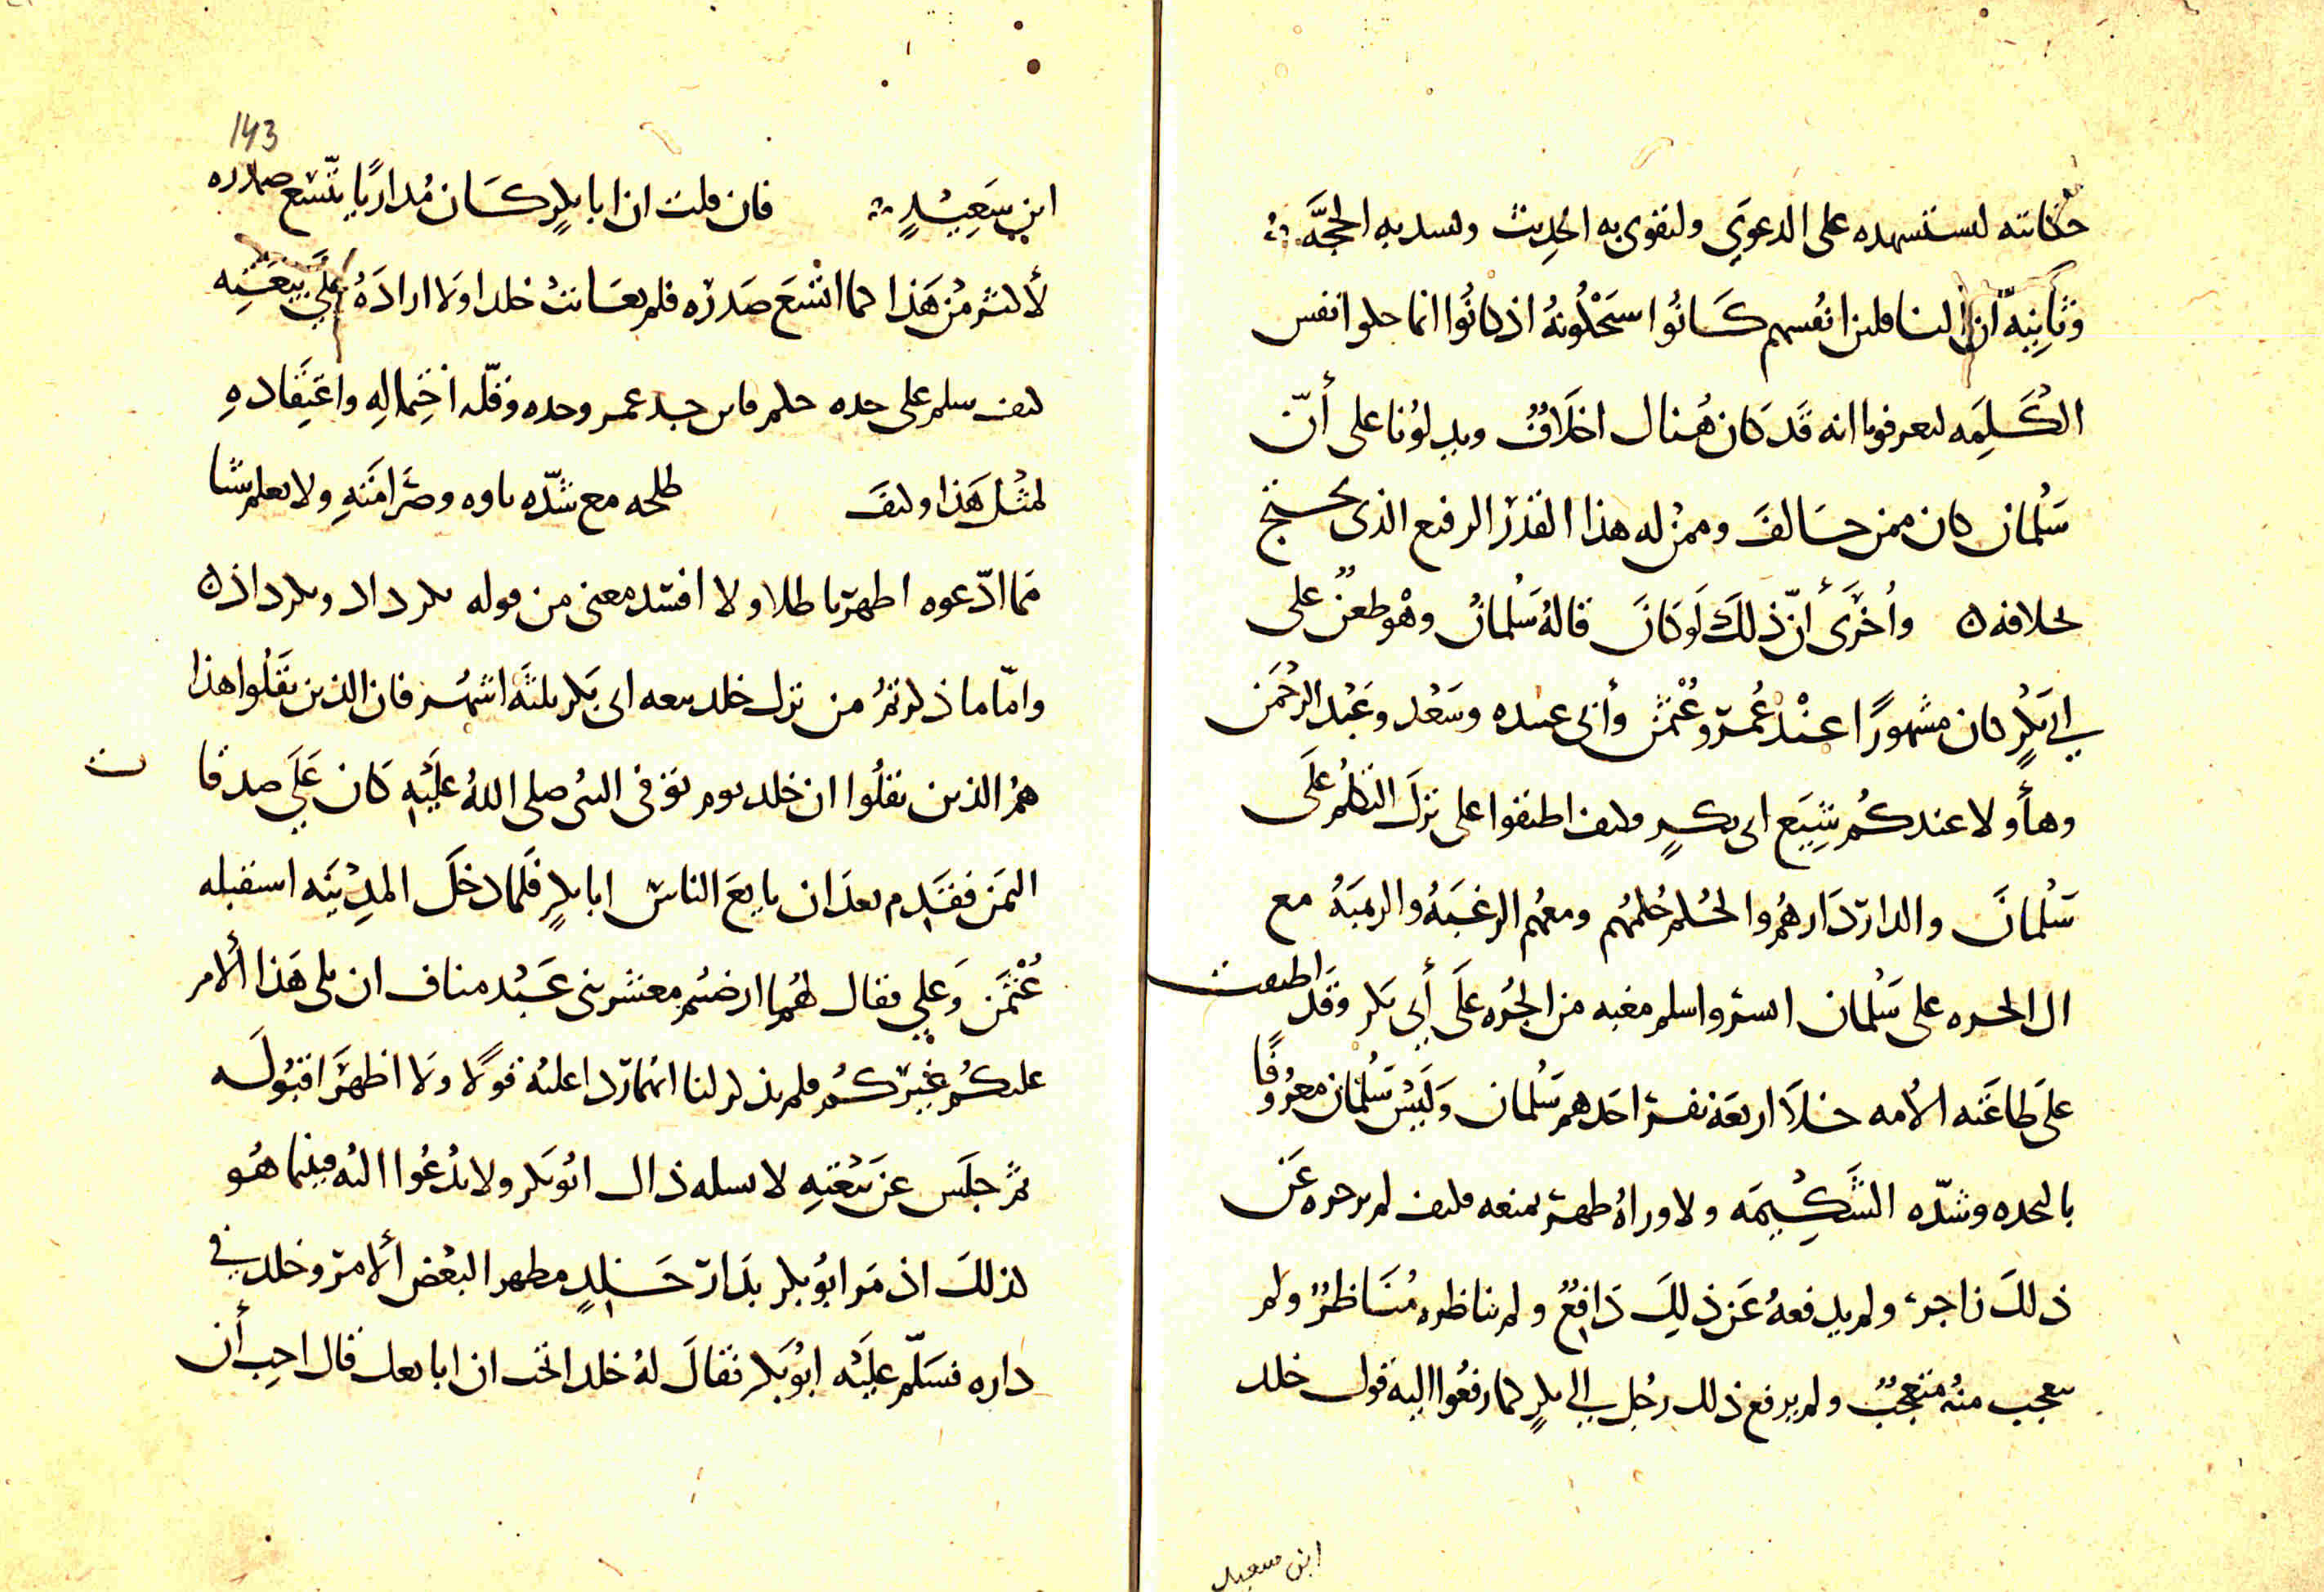 حكايته ليستشهده على الدعوى وليقوى به الحديث وليسد به الحجَّة
وثانية ان الناقلين انفسهم كانوا يستحلونه اذ كانوا انما حلوا نفس
الكلمة ليعرفونا انه قد كان هنال اخلاف ويدلونا على أنّ
سلمان كان ممن خالف وممن له هذا القدر الرفيع الذى يحتج
بخلافه ن وأخرى أنّ ذلك لو كان قاله سلمان وهو طعن على
ابي بكرٍ كان مشهورًا عند عمر وعثمن وأبى عبيده وسعد وعبد الرحمن
وهاؤلا عندكم شيع ابى بكرٍ فكيف اطبقوا على ترك التكلم على
سلمان والدار دارهم والحكم حكمهم ومعهم الرغبة والرهبة مع
ال الجره على سلمان ايسر واسلم مغبه من الجره على أبي بكر وقد اطبقت
على طاعته الأمه خلا اربعة نفر احدهم سلمان وليس سلمان معروفًا
بالنجده وشدّه الشكيمه ولا وراه ظهر يمنعه فكيف لم يزجره عن
ذلك زاجر ولم يدفعه عن ذلك دافع ولم يناظره مناظر ولم
يعجب منه متعجب ولم يرفع ذلك رجل الي ابي بكرٍ كما رفعوا اليه قول خلد
ابن سعيد
143
ابن سعيدٍ فان قلت ان ابا بكرٍ كان مداريًا يتسع صدره
لأكثر من هذا كما اتسع صدره فلم يعاتب خلدا ولا اراده على بيعته
كيف سلم على حده حلم فاين جد عمر وحده وقلّه احتماله واعتقاده
لمثل هذا وكيف طلحه مع شدّه باوه وصرامته ولا يعلم شيا
مما ادّعوه اظهر باطلا ولا افسد معنى من قوله كرداد ونكرداد ن
وامّا ما ذكرتم من ترك خلد بيعه ابى بكر ثلثه اشهر فان الذين نقلوا هذا
هم الذين نقلوا ان خلد يوم توفى النبى صلى الله عليه كان على صدقات
اليمن فقدم بعد ان بايع الناس ابا بكرٍ فلما دخل المدينه استقبله
عثمن وعلي فقال لهما ارضيتم معشر بنى عبد مناف ان يلى هذا الأمر
عليكم غيركم فلم يذكر لنا انهما ردا عليه قولا ولا اظهرا قبوله
ثم جلس عن بيعته لا يسله ذال ابو بكر ولا يدعوا اليه فبينما هو
كذلك اذ مر ابو بكر بدار خلدٍ مظهر البعض ألامر وخلد في
داره فسلّم عليه ابو بكر فقال له خلد اتحب ان ابايعك قال احب أن